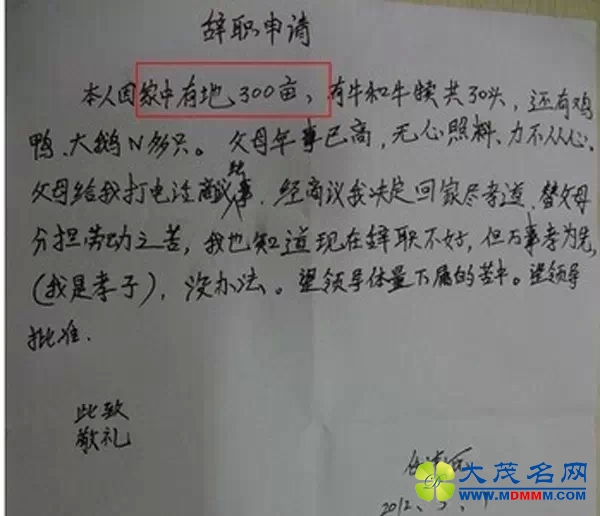 辞职申请
本人因家中有地300亩，有牛和牛犊共30头，还有鸡
鸭、大鹅N多只。父母年事已高，无心照料、力不从心。
父母给我打电话商议此事，经商议我决定回家尽孝道，替父母
分担劳动之苦，我也知道现在辞职不好，但万事孝为先，
(我是孝子)，没办法。望领导体量下属的苦中。望领导
批准.
此致
敬礼
2012、5、
大茂名网
www.MDMMM.com